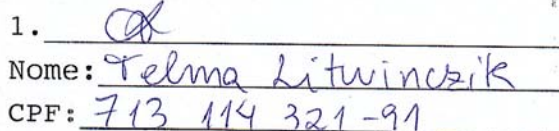 1.
Nome: Telma Litwinczik
CPF: 713 114 321-91